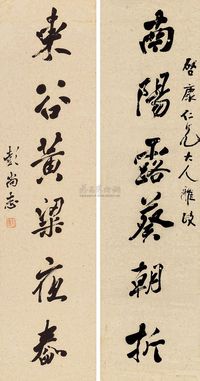 啓康仁兄大人雅政
南陽露葵朝折
東谷黃粱夜舂
彭尚志